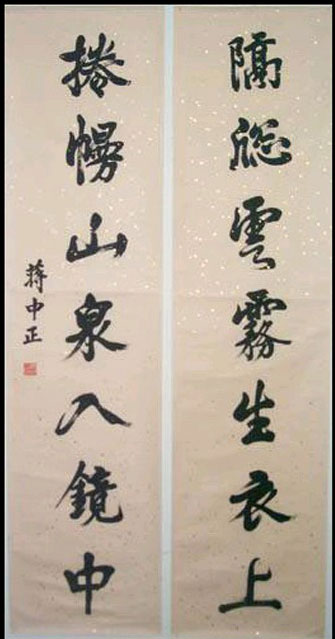 隔窓雲霧生衣上
捲幔山泉入鏡中
蔣中正